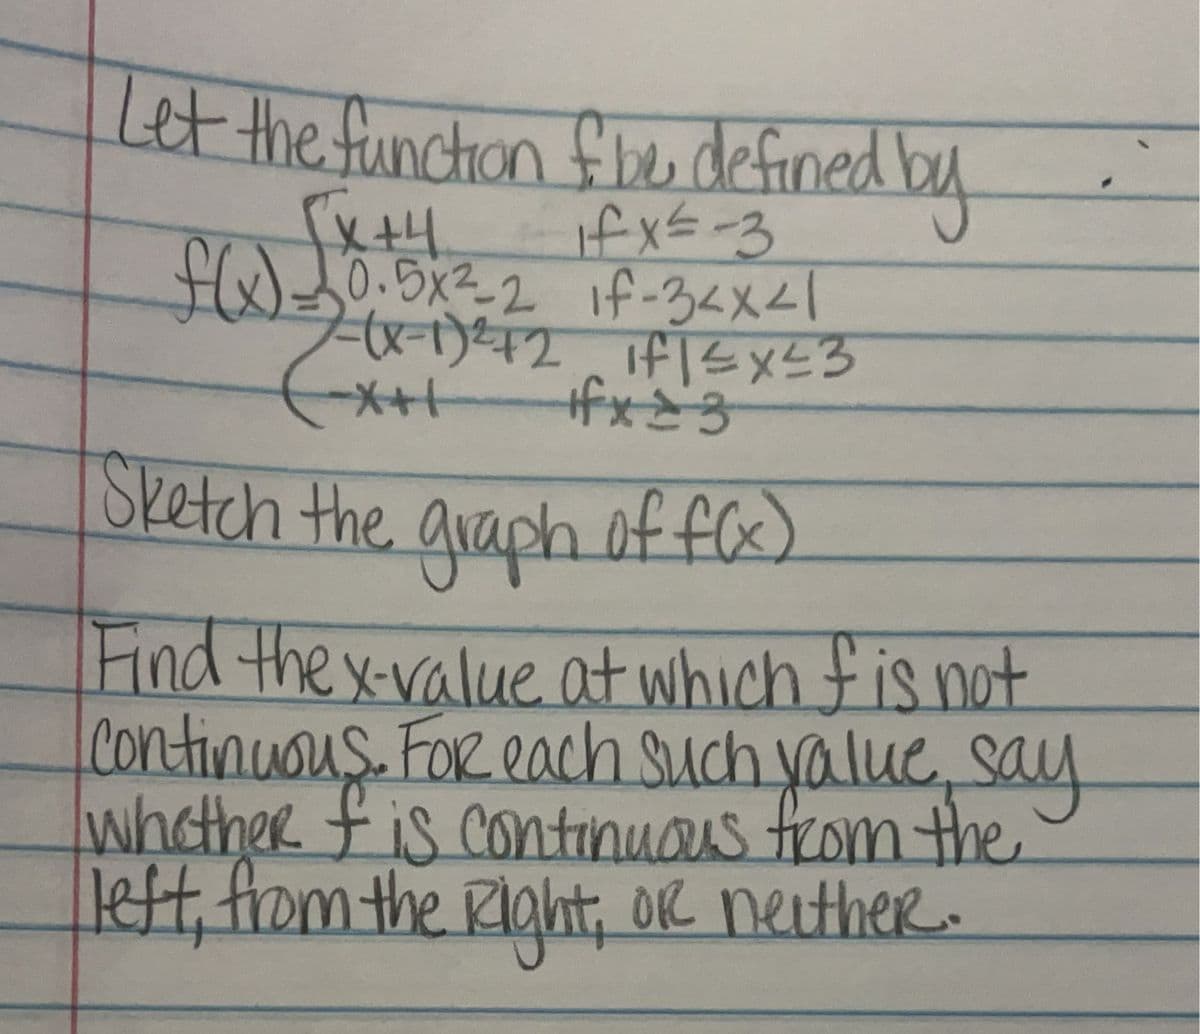 Let the function f be defined by
x+4 if x≤-3
f(x)= 0.5x²-2 if -3<x<1
-(x-1)²+2 if 1≤x≤3
-x+1 if x≥3
Sketch the graph of f(x)
Find the x-value at which f is not
continuous. For each such value, say
whether f is continuous from the
left, from the Right, or neither.